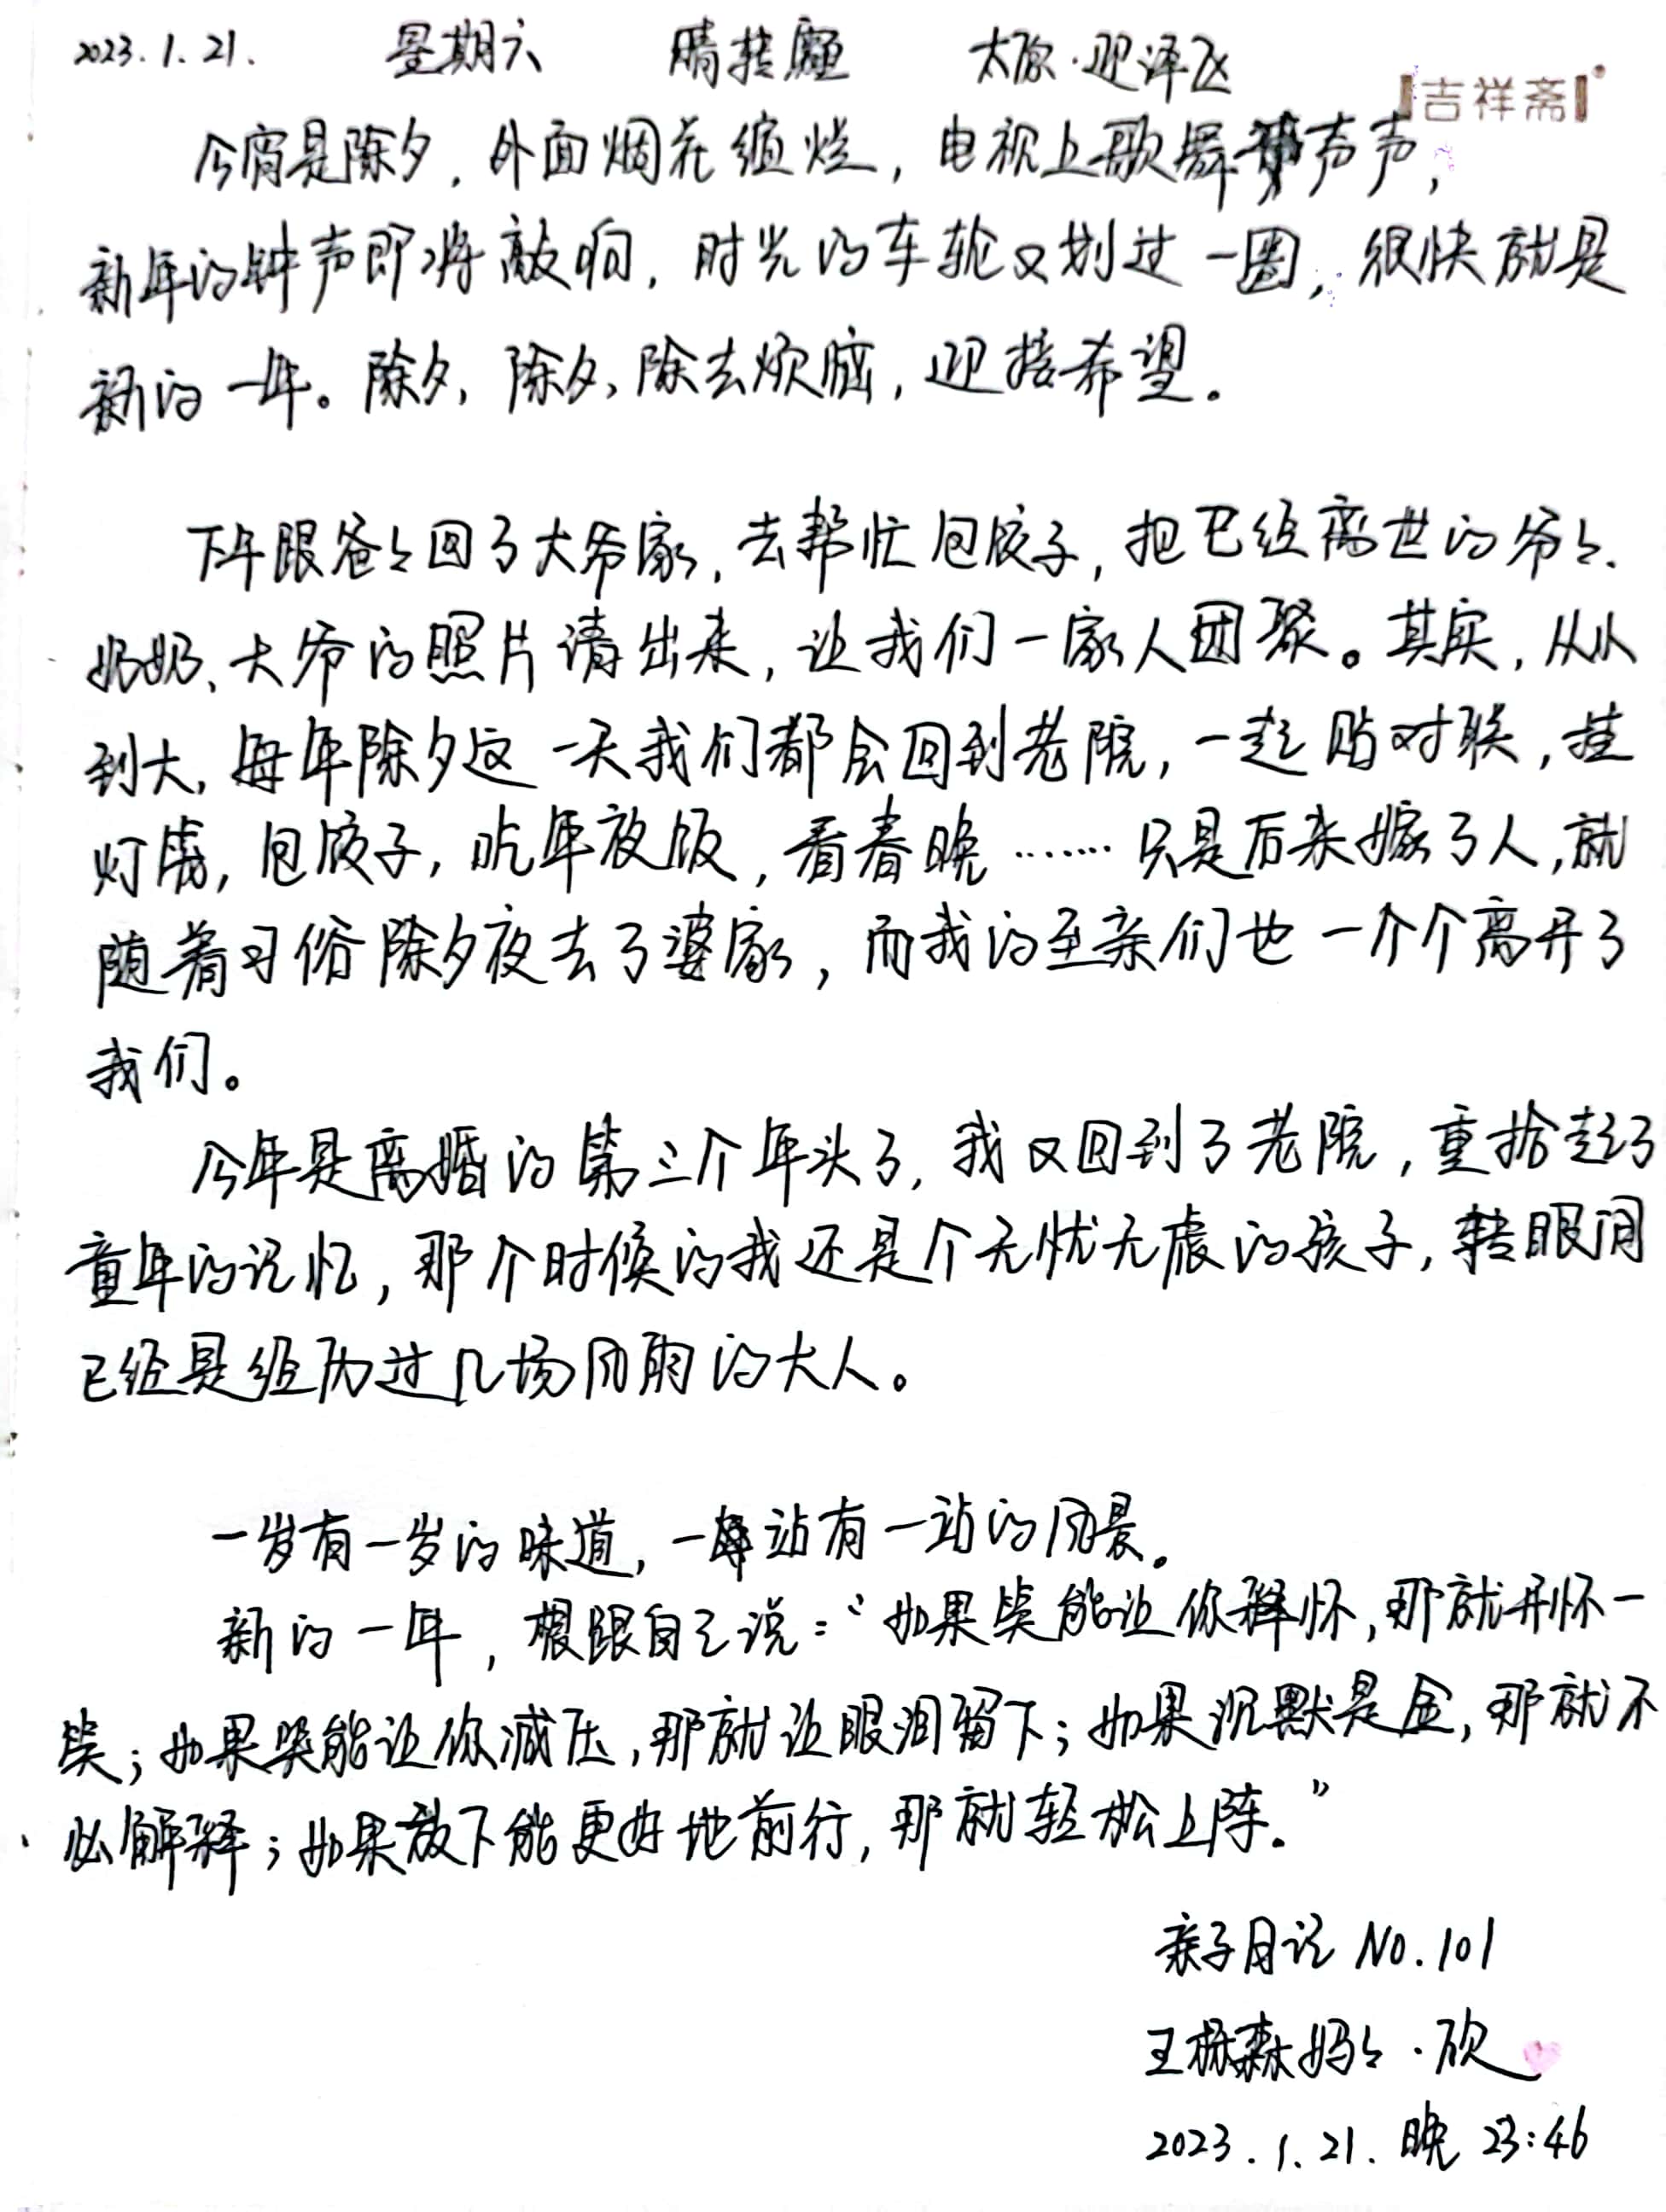 2023.1.21. 星期六 晴转霾 太原·迎泽区
吉祥斋
今宵是除夕，外面烟花绚烂，电视上歌舞声声，
新年的钟声即将敲响，时光的车轮又划过一圈，很快就是
新的一年。除夕，除夕，除去烦恼，迎接希望。
下午跟爸爸回了大爷家，去帮忙包饺子，把已经离世的爷爷、
奶奶、大爷的照片请出来，让我们一家人团聚。其实，从小
到大，每年除夕这一天我们都会回到老院，一起贴对联，挂
灯笼，包饺子，吃年夜饭，看春晚……只是后来嫁了人，就
随着习俗除夕夜去了婆家，而我的至亲们也一个个离开了
我们。
今年是离婚的第三个年头了，我又回到了老院，重拾起了
童年的记忆，那个时候的我还是个无忧无虑的孩子，转眼间
已经是经历过几场风雨的大人。
一岁有一岁的味道，一站有一站的风景。
新的一年，想跟自己说：“如果笑能让你释怀，那就开怀一
笑；如果哭能让你减压，那就让眼泪留下；如果沉默是金，那就不
必解释；如果放下能更好地前行，那就轻松上阵。”
亲子日记 NO.101
王栎森妈妈·欣
2023.1.21. 晚 23:46